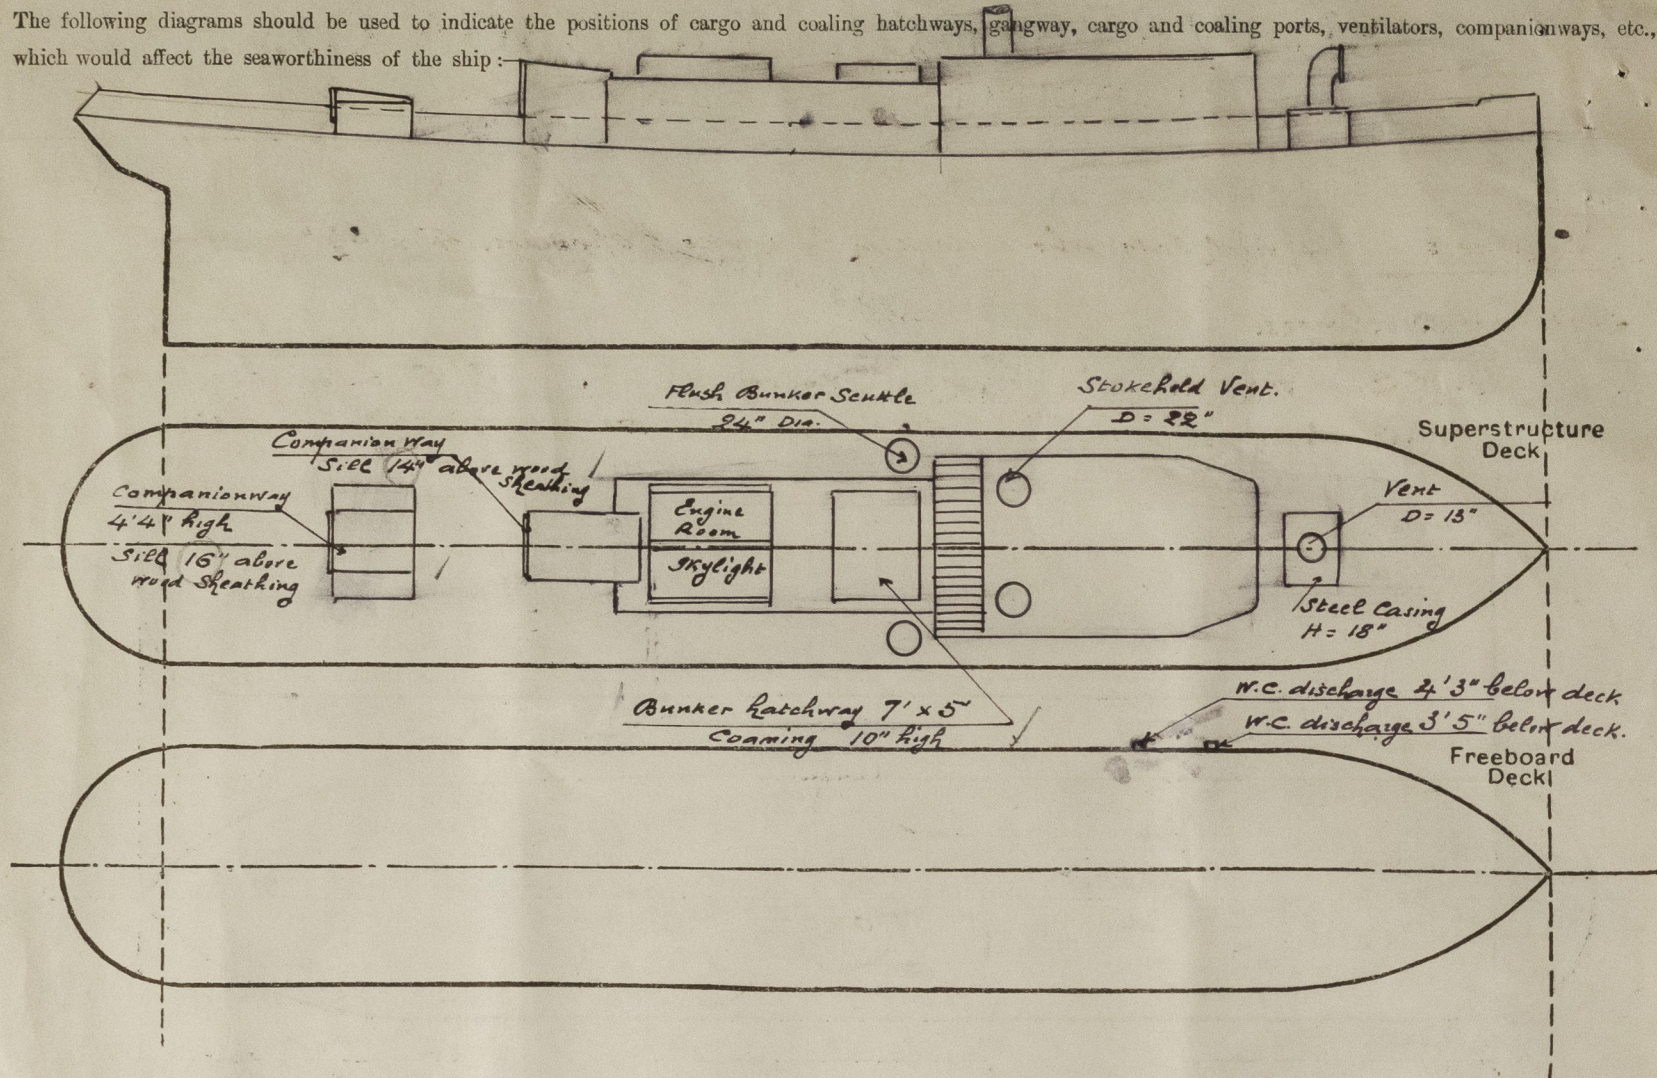 The following diagrams should be used to indicate the positions of cargo and coaling hatchways, gangway, cargo and coaling ports, ventilators, companionways, etc.,
which would affect the seaworthiness of the ship :—
Flush Bunker Scuttle
24" Dia.
Stokehold Vent.
D = 22"
Superstructure
Deck
Companionway
Sill 14" above wood
Sheathing
Companionway
4'4" high
Sill 16" above
wood Sheathing
Engine
Room
Skylight
Vent
D = 13"
Steel Casing
H = 18"
Bunker hatchway 7' x 5'
Coaming 10" high
W.C. discharge 4'3" below deck
W.C. discharge 3'5" below deck.
Freeboard
Deck